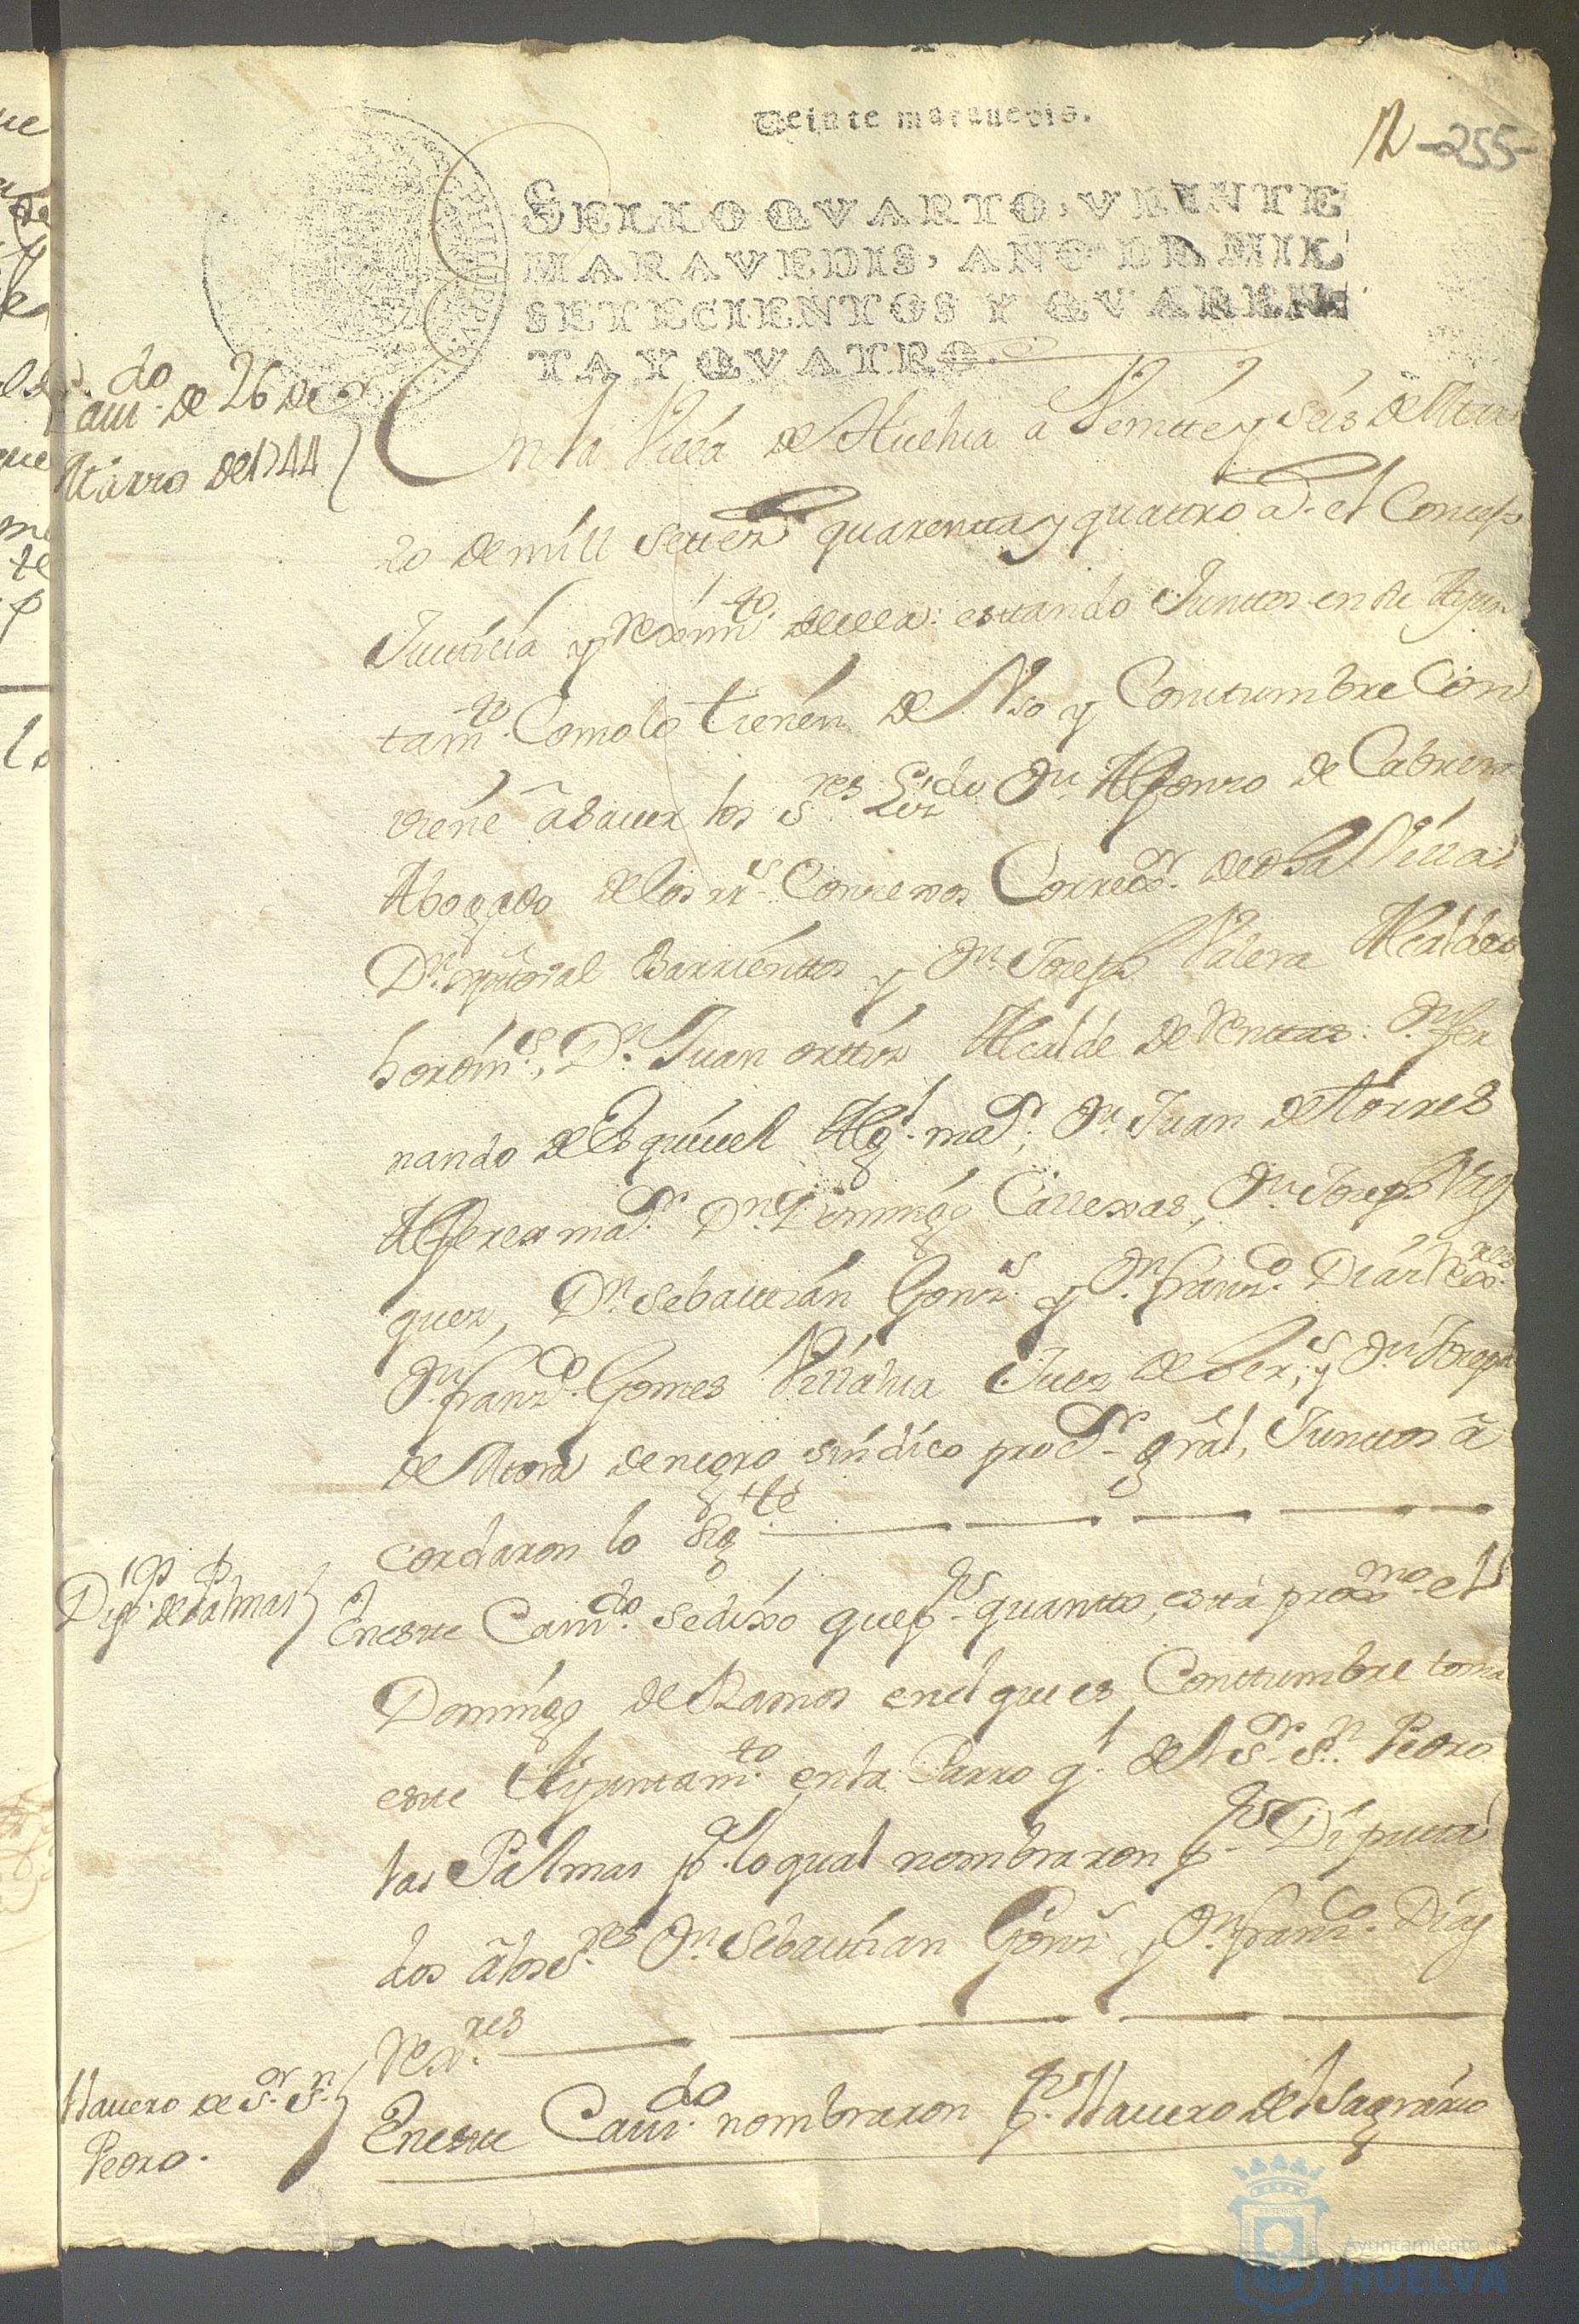 Veinte maravedis.
12 -255-
SELLO QVARTO, VEINTE
MARAVEDIS, AÑO DE MIL
SETECIENTOS Y QVAREN
TA Y QVATRO.
Cavi.do de 26 de
Marzo de 1744
En la Villa de Huelva a Veintte y seis de Mar
zo de mill settez.s quarentta y quattro a.s el Concejo
Justticia y Reximi.to de ella: esttando Junttos en su Ayun
tam.to Como lo tienen de Vso y Costtumbre Com
biene â saver los S.res Liz.do D.n Alfonso de Cabrera
Abogado de los rr.s Consexos Correx.or de dha Villa
D.n xpttoval Barrienttos y D.n Joseph Valera Alcaldes
hordin.s, D.n Juan orttiz Alcalde de Renttas: D.n Fer
nando de Esquivel Alg.l ma.or, D.n Juan de Torres
Alferez ma.or D.n Domingo Callexas, D.n Joseph Vaz
quez, D.n Sebasttian Gonz.s y D.n Franz.co Diaz Rex.res
D.n Franz.co Gomes Villalva Juez de Ser.s, y D.n Joseph
de Mora denegro sindico pro.or gral, Junttos â
cordaron lo Sig.tte
Dip.s p.a de Palmas
En estte Cavi.do se dixo que p.r quantto, estta prox.mo el
Domingo de Ramos en el que es Costtumbre toma
estte Ayuntam.to en la Parroq.l del S.or S.n Pedro
las Palmas p.a lo qual nombraron p.r Diputta
dos â los S.res D.n Sebasttian Gonz.s y D.n Franz.co Diaz
Rex.res
Llavero de S.or S.n
Pedro.
En estte Cavi.do nombraron p.r Llavero del Sagrario
Ayuntamiento de
HUELVA